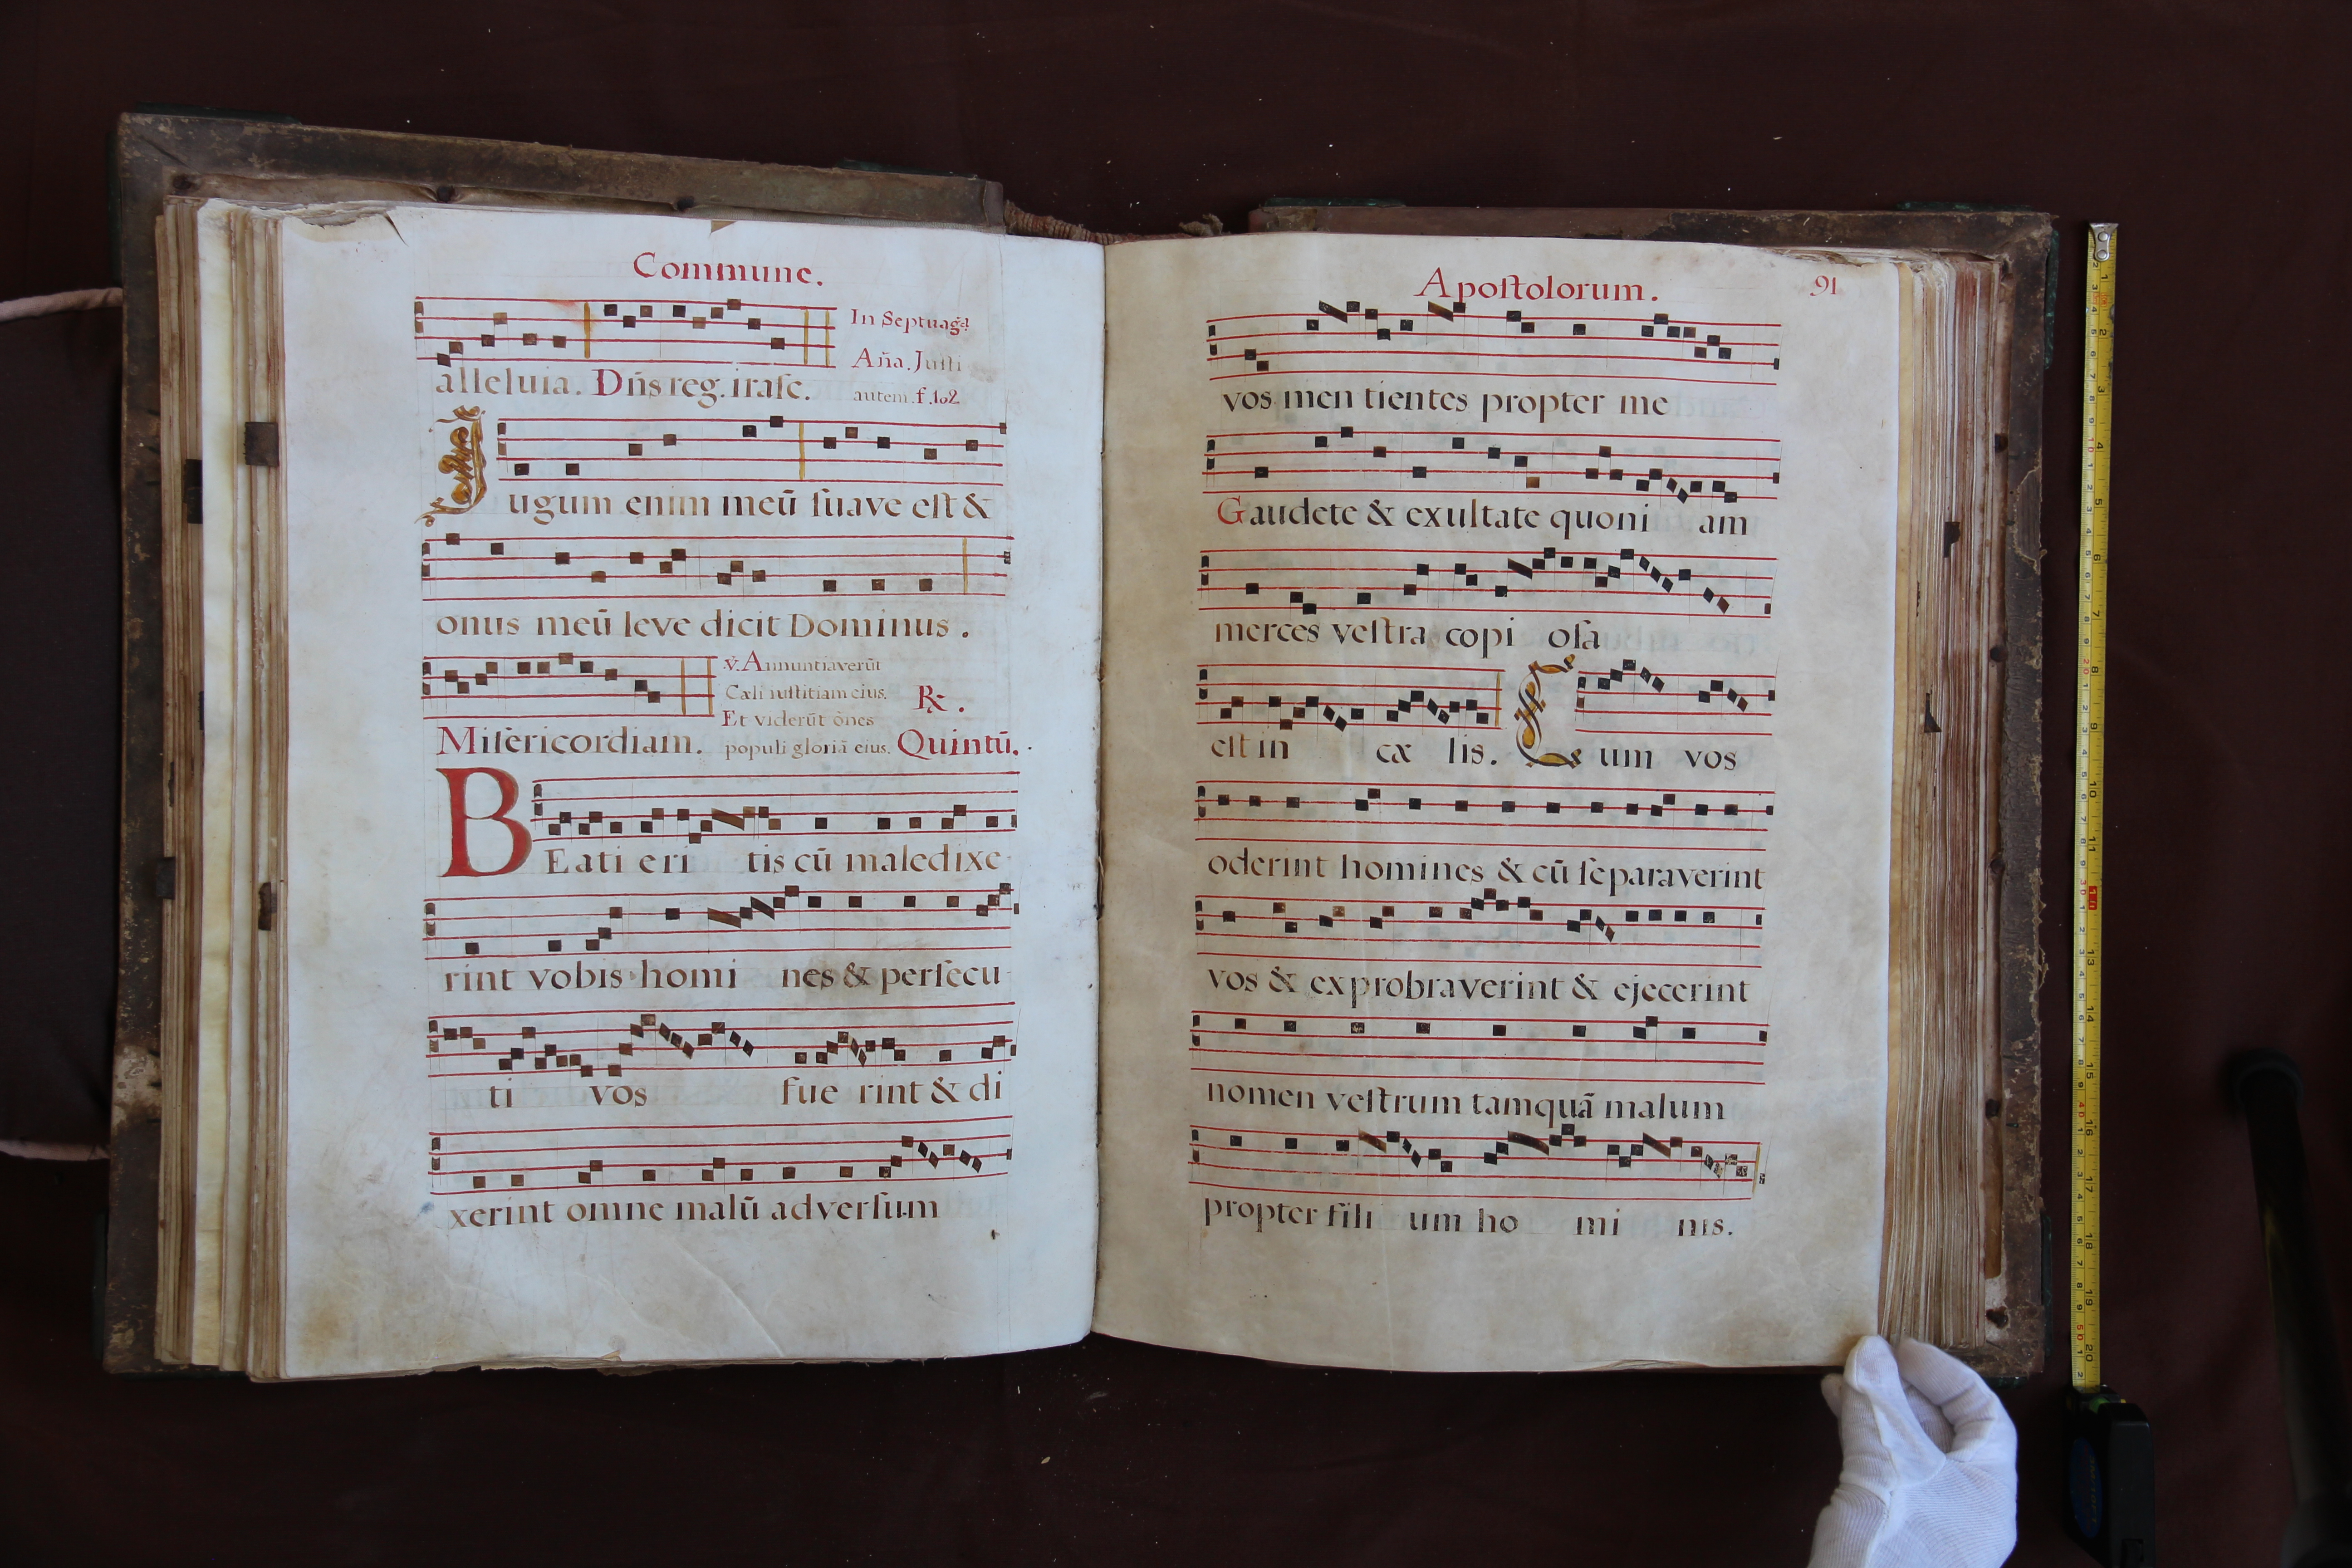 Commune.
In Septuag.
Aña. Justi
alleluia. Dñs reg. irasc. autem. f. 102
Jugum enim meū suave est &
onus meū leve dicit Dominus.
℣. Annuntiaverūt
Cæli iustitiam eius. ℟.
Et viderūt ōnes
Misericordiam. populi gloriā eius. Quintū.
BEati eri tis cū maledixe
rint vobis homi nes & persecu
ti vos fue rint & di
xerint omne malū adversum
Apostolorum. 91
vos men tientes propter me
Gaudete & exultate quoni am
merces vestra copi osa
est in cæ lis. Cum vos
oderint homines & cū separaverint
vos & exprobraverint & ejecerint
nomen vestrum tamquā malum
propter fili um ho mi nis.